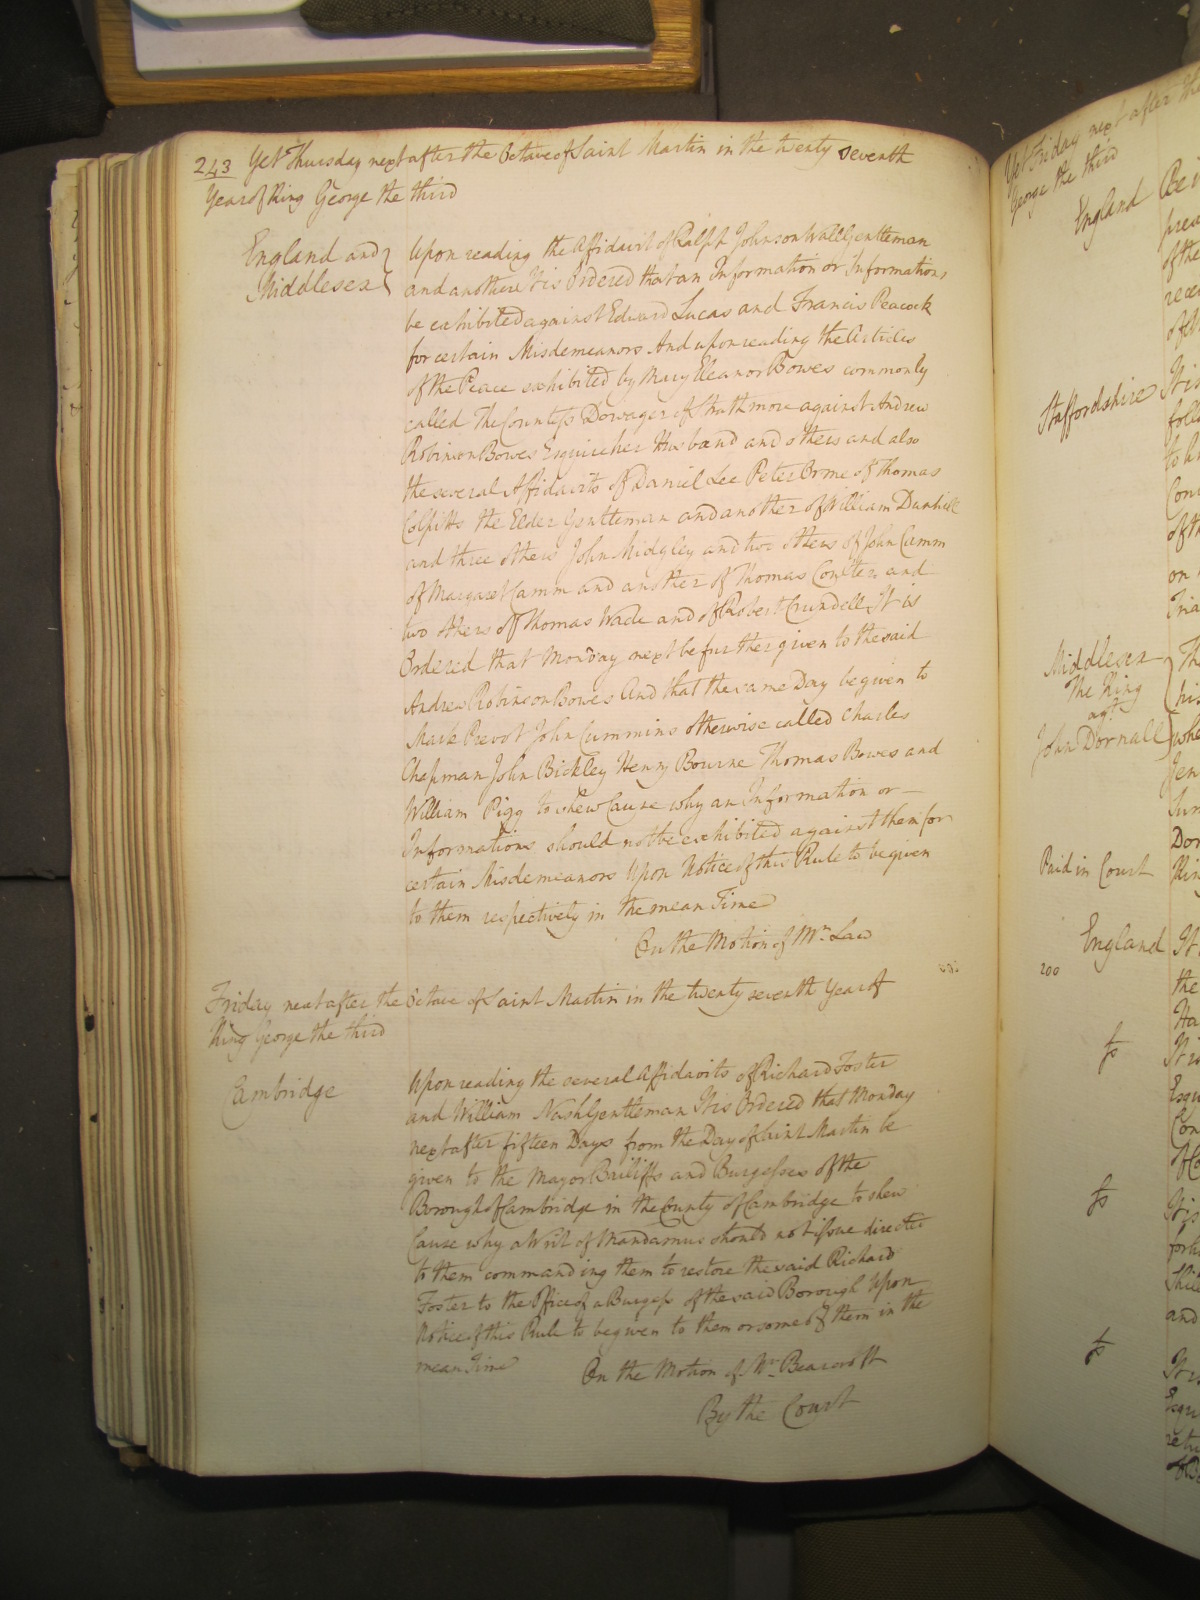 243 Yet Thursday next after the Octave of Saint Martin in the twenty seventh
Year of King George the third
England and
Middlesex
Upon reading the Affidavit of Ralph Johnson Wall Gentleman
and another It is Ordered that an Information or Informations
be exhibited against Edward Lucas and Francis Peacock
for certain Misdemeanors And upon reading the Articles
of the Peace exhibited by Mary Eleanor Bowes commonly
called The Countess Dowager of Strathmore against Andrew
Robinson Bowes Esquire her Husband and others and also
the several Affidavits of Daniel Lee Peter Orme of Thomas
Colpitts the Elder Gentleman and another of William Dunhill
and three others John Midgley and two others of John Camm
of Margaret Camm and another of Thomas Coulter and
two others of Thomas Wade and of Robert Crundell It is
Ordered that Monday next be further given to the said
Andrew Robinson Bowes And that the same Day be given to
Mark Prevot John Cummins otherwise called Charles
Chapman John Bickley Henry Bourne Thomas Bowes and
William Pigg to shew Cause why an Information or
Informations should not be exhibited against them for
certain Misdemeanors Upon Notice of this Rule to be given
to them respectively in the mean Time
On the Motion of Mr. Law
Friday next after the Octave of Saint Martin in the twenty seventh Year of
King George the third
Cambridge
Upon reading the several Affidavits of Richard Foster
and William Nash Gentleman It is Ordered that Monday
next after fifteen Days from the Day of Saint Martin be
given to the Mayor Bailiffs and Burgesses of the
Borough of Cambridge in the County of Cambridge to shew
Cause why a Writ of Mandamus should not issue directed
to them commanding them to restore the said Richard
Foster to the Office of a Burgess of the said Borough Upon
Notice of this Rule to be given to them or some of them in the
mean Time
On the Motion of Mr. Bearcroft
By the Court
Yet Friday next after the
George the third
England
of the
Staffordshire
It is
to
of th
on
Tria
Middlesex
The King
agt.
John Dornall
The
his
whe
Dor
Paid in Court
Kin
England
200
It
the
Ha
It is
Esqu
Con
of
It i
and
It is
Esqu